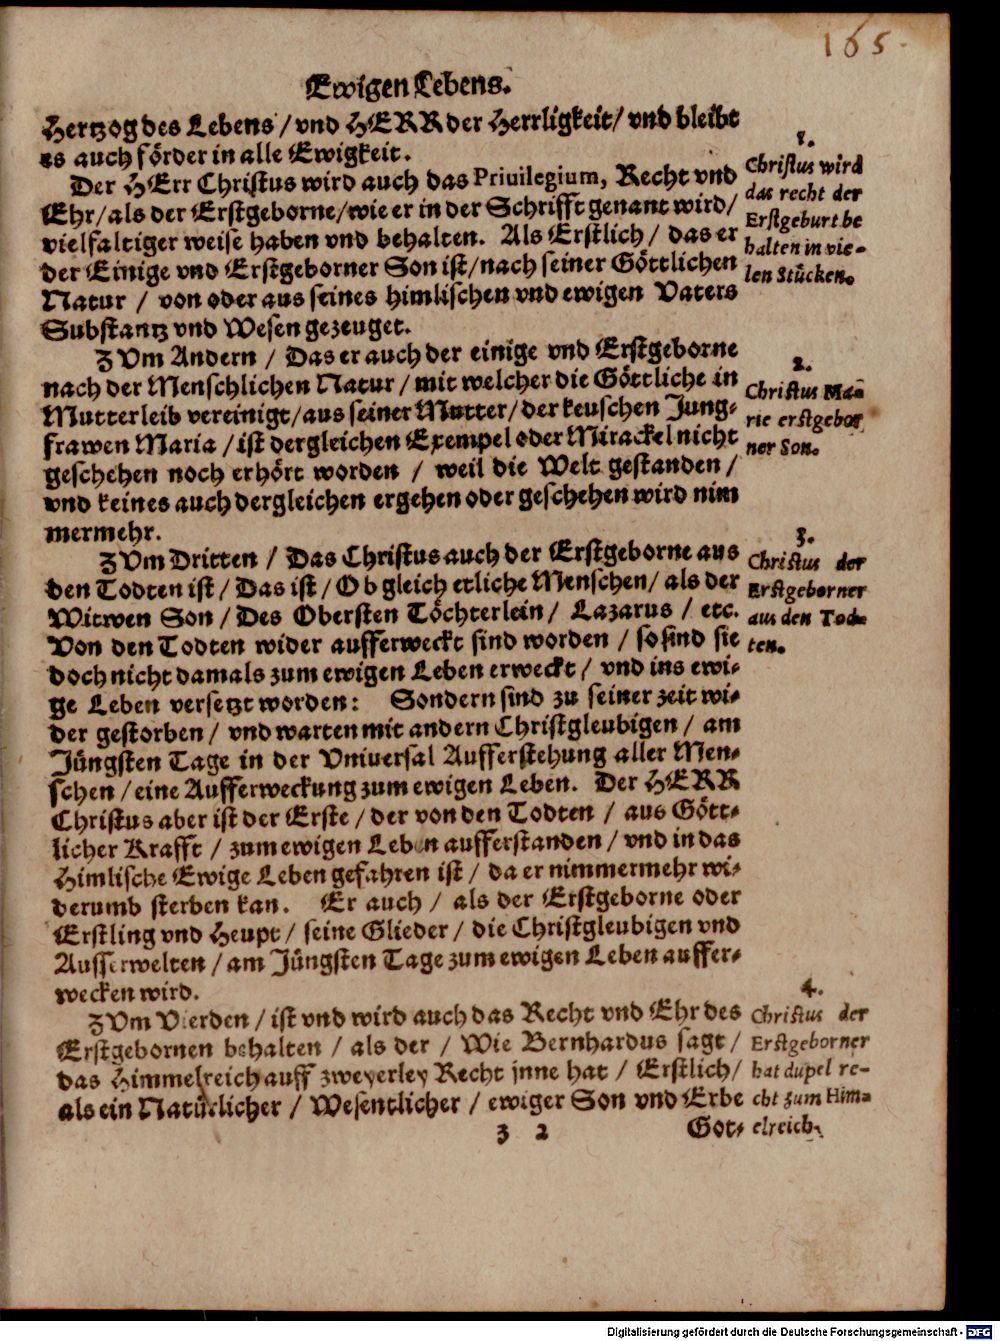 165.
Ewigen Lebens.
Hertzog des Lebens / vnd HERR der Herrligkeit / vnd bleibt
es auch förder in alle Ewigkeit.
Der HErr Christus wird auch das Priuilegium, Recht vnd
Ehr / als der Erstgeborne / wie er in der Schrifft genant wird /
vielfaltiger weise haben vnd behalten. Als Erstlich / das er
der Einige vnd Erstgeborner Son ist / nach seiner Göttlichen
Natur / von oder aus seines himlischen vnd ewigen Vaters
Substantz vnd Wesen gezeuget.
1.
Christus wird
das recht der
Erstgeburt be
halten in vie-
len Stücken.
ZVm Andern / Das er auch der einige vnd Erstgeborne
nach der Menschlichen Natur / mit welcher die Göttliche in
Mutterleib vereinigt / aus seiner Mutter / der keuschen Jung-
frawen Maria / ist dergleichen Exempel oder Mirackel nicht
geschehen noch erhört worden / weil die Welt gestanden /
vnd keines auch dergleichen ergehen oder geschehen wird nim
mermehr.
2.
Christus Ma-
rie erstgebor
ner Son.
ZVm Dritten / Das Christus auch der Erstgeborne aus
den Todten ist / Das ist / Ob gleich etliche Menschen / als der
Witwen Son / Des Obersten Töchterlein / Lazarus / etc.
Von den Todten wider aufferweckt sind worden / so sind sie
doch nicht damals zum ewigen Leben erweckt / vnd ins ewi-
ge Leben versetzt worden: Sondern sind zu seiner zeit wi-
der gestorben / vnd warten mit andern Christgleubigen / am
Jüngsten Tage in der Vniuersal Aufferstehung aller Men-
schen / eine Aufferweckung zum ewigen Leben. Der HERR
Christus aber ist der Erste / der von den Todten / aus Gött-
licher Krafft / zum ewigen Leben aufferstanden / vnd in das
Himlische Ewige Leben gefahren ist / da er nimmermehr wi-
derumb sterben kan. Er auch / als der Erstgeborne oder
Erstling vnd Heupt / seine Glieder / die Christgleubigen vnd
Ausserwelten / am Jüngsten Tage zum ewigen Leben auffer-
wecken wird.
3.
Christus der
Erstgeborner
aus den Tod-
ten.
ZVm Vierden / ist vnd wird auch das Recht vnd Ehr des
Erstgebornen behalten / als der / Wie Bernhardus sagt /
das Himmelreich auff zweyerley Recht jnne hat / Erstlich /
als ein Natürlicher / Wesentlicher / ewiger Son vnd Erbe
4.
Christus der
Erstgeborner
hat dupel re-
cht zum Him-
elreich.
Z 2
Got-
Digitalisierung gefördert durch die Deutsche Forschungsgemeinschaft - DFG